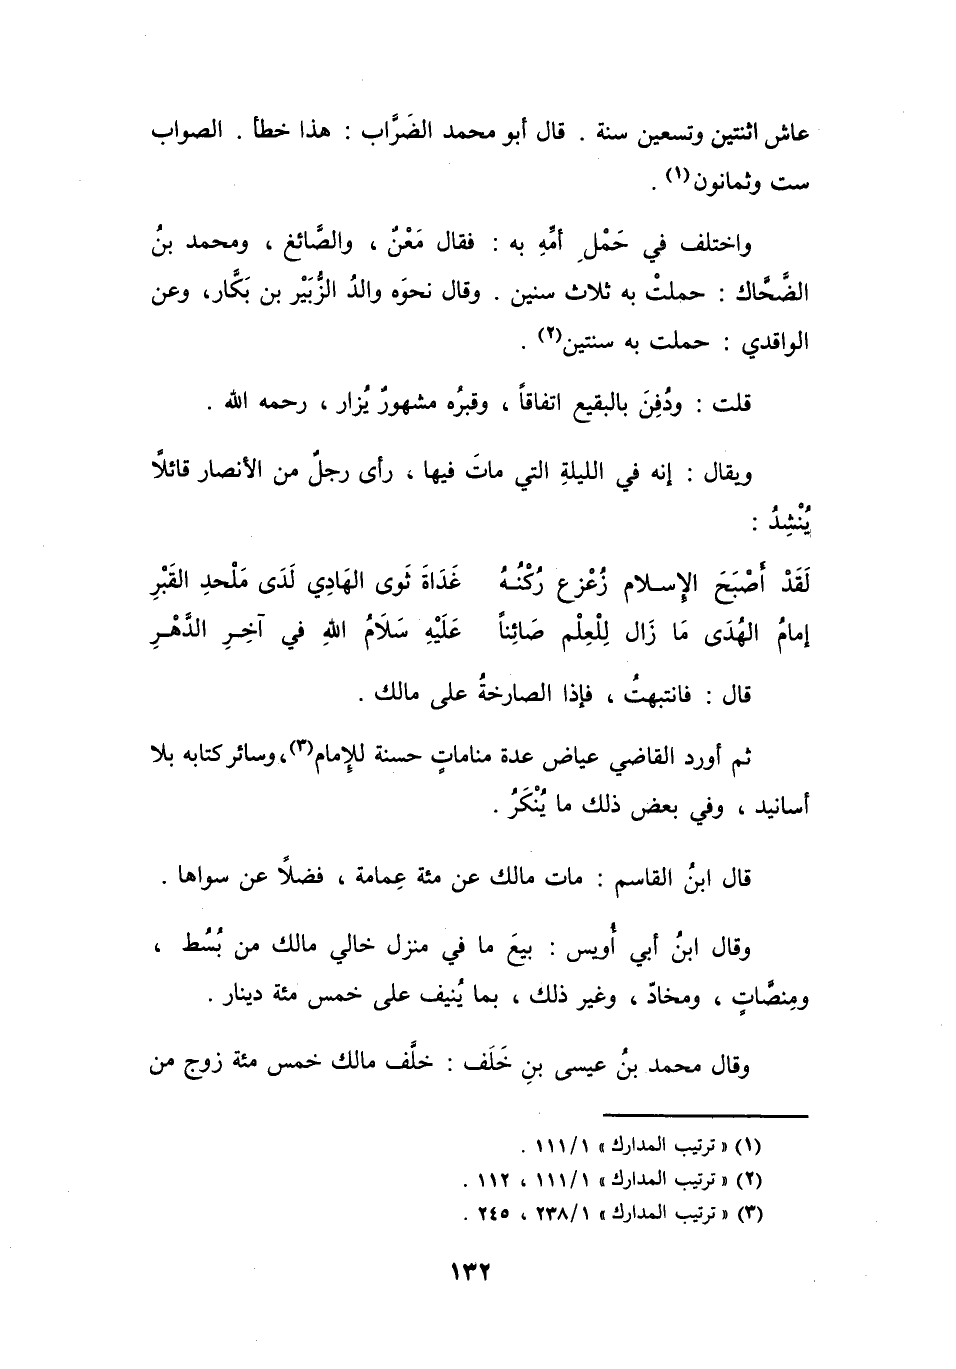 عاش اثنتين وتسعين سنة . قال أبو محمد الضَرَّاب : هذا خطأ . الصواب
ست وثمانون(١) .
واختلف في حَمْلِ أمِّهِ به : فقال مَعْنٌ ، والصَّائغ ، ومحمد بنُ
الضَّحَّاك : حملتْ به ثلاث سنين . وقال نحوَه والدُ الزُّبَيْر بن بَكَّار، وعن
الواقدي : حملت به سنتين(٢) .
قلت : ودُفِنَ بالبقيع اتفاقاً ، وقبرُه مشهورٌ يُزار ، رحمه الله .
ويقال : إنه في الليلةِ التي ماتَ فيها ، رأى رجلٌ من الأنصار قائلًا
يُنْشِدُ :
لَقَدْ أَصْبَحَ الإِسلام زُعْزع رُكْنُهُ غَدَاةَ ثَوى الهَادِي لَدَى مَلْحدِ القَبْرِ
إمامُ الهُدَى مَا زَال لِلْعِلْم صَائِناً عَلَيْهِ سَلَامُ اللهِ في آخِرِ الدَّهْرِ
قال : فانتبهتُ ، فإذا الصارخةُ على مالك .
ثم أورد القاضي عياض عدة مناماتٍ حسنة للإمام(٣)، وسائر كتابه بلا
أسانيد ، وفي بعض ذلك ما يُنْكَرُ .
قال ابنُ القاسم : مات مالك عن مئة عِمامة ، فضلًا عن سواها .
وقال ابنُ أبي أُويس : بيعَ ما في منزل خالي مالك من بُسُط ،
ومِنصَّاتٍ ، ومخادّ ، وغير ذلك ، بما يُنيف على خمس مئة دينار .
وقال محمد بنُ عيسى بنِ خَلَف : خلَّف مالك خمس مئة زوج من
(١) « ترتيب المدارك » ١١١/١ .
(٢) « ترتيب المدارك » ١١١/١ ، ١١٢ .
(٣) « ترتيب المدارك » ٢٣٨/١ ، ٢٤٥ .
١٣٢